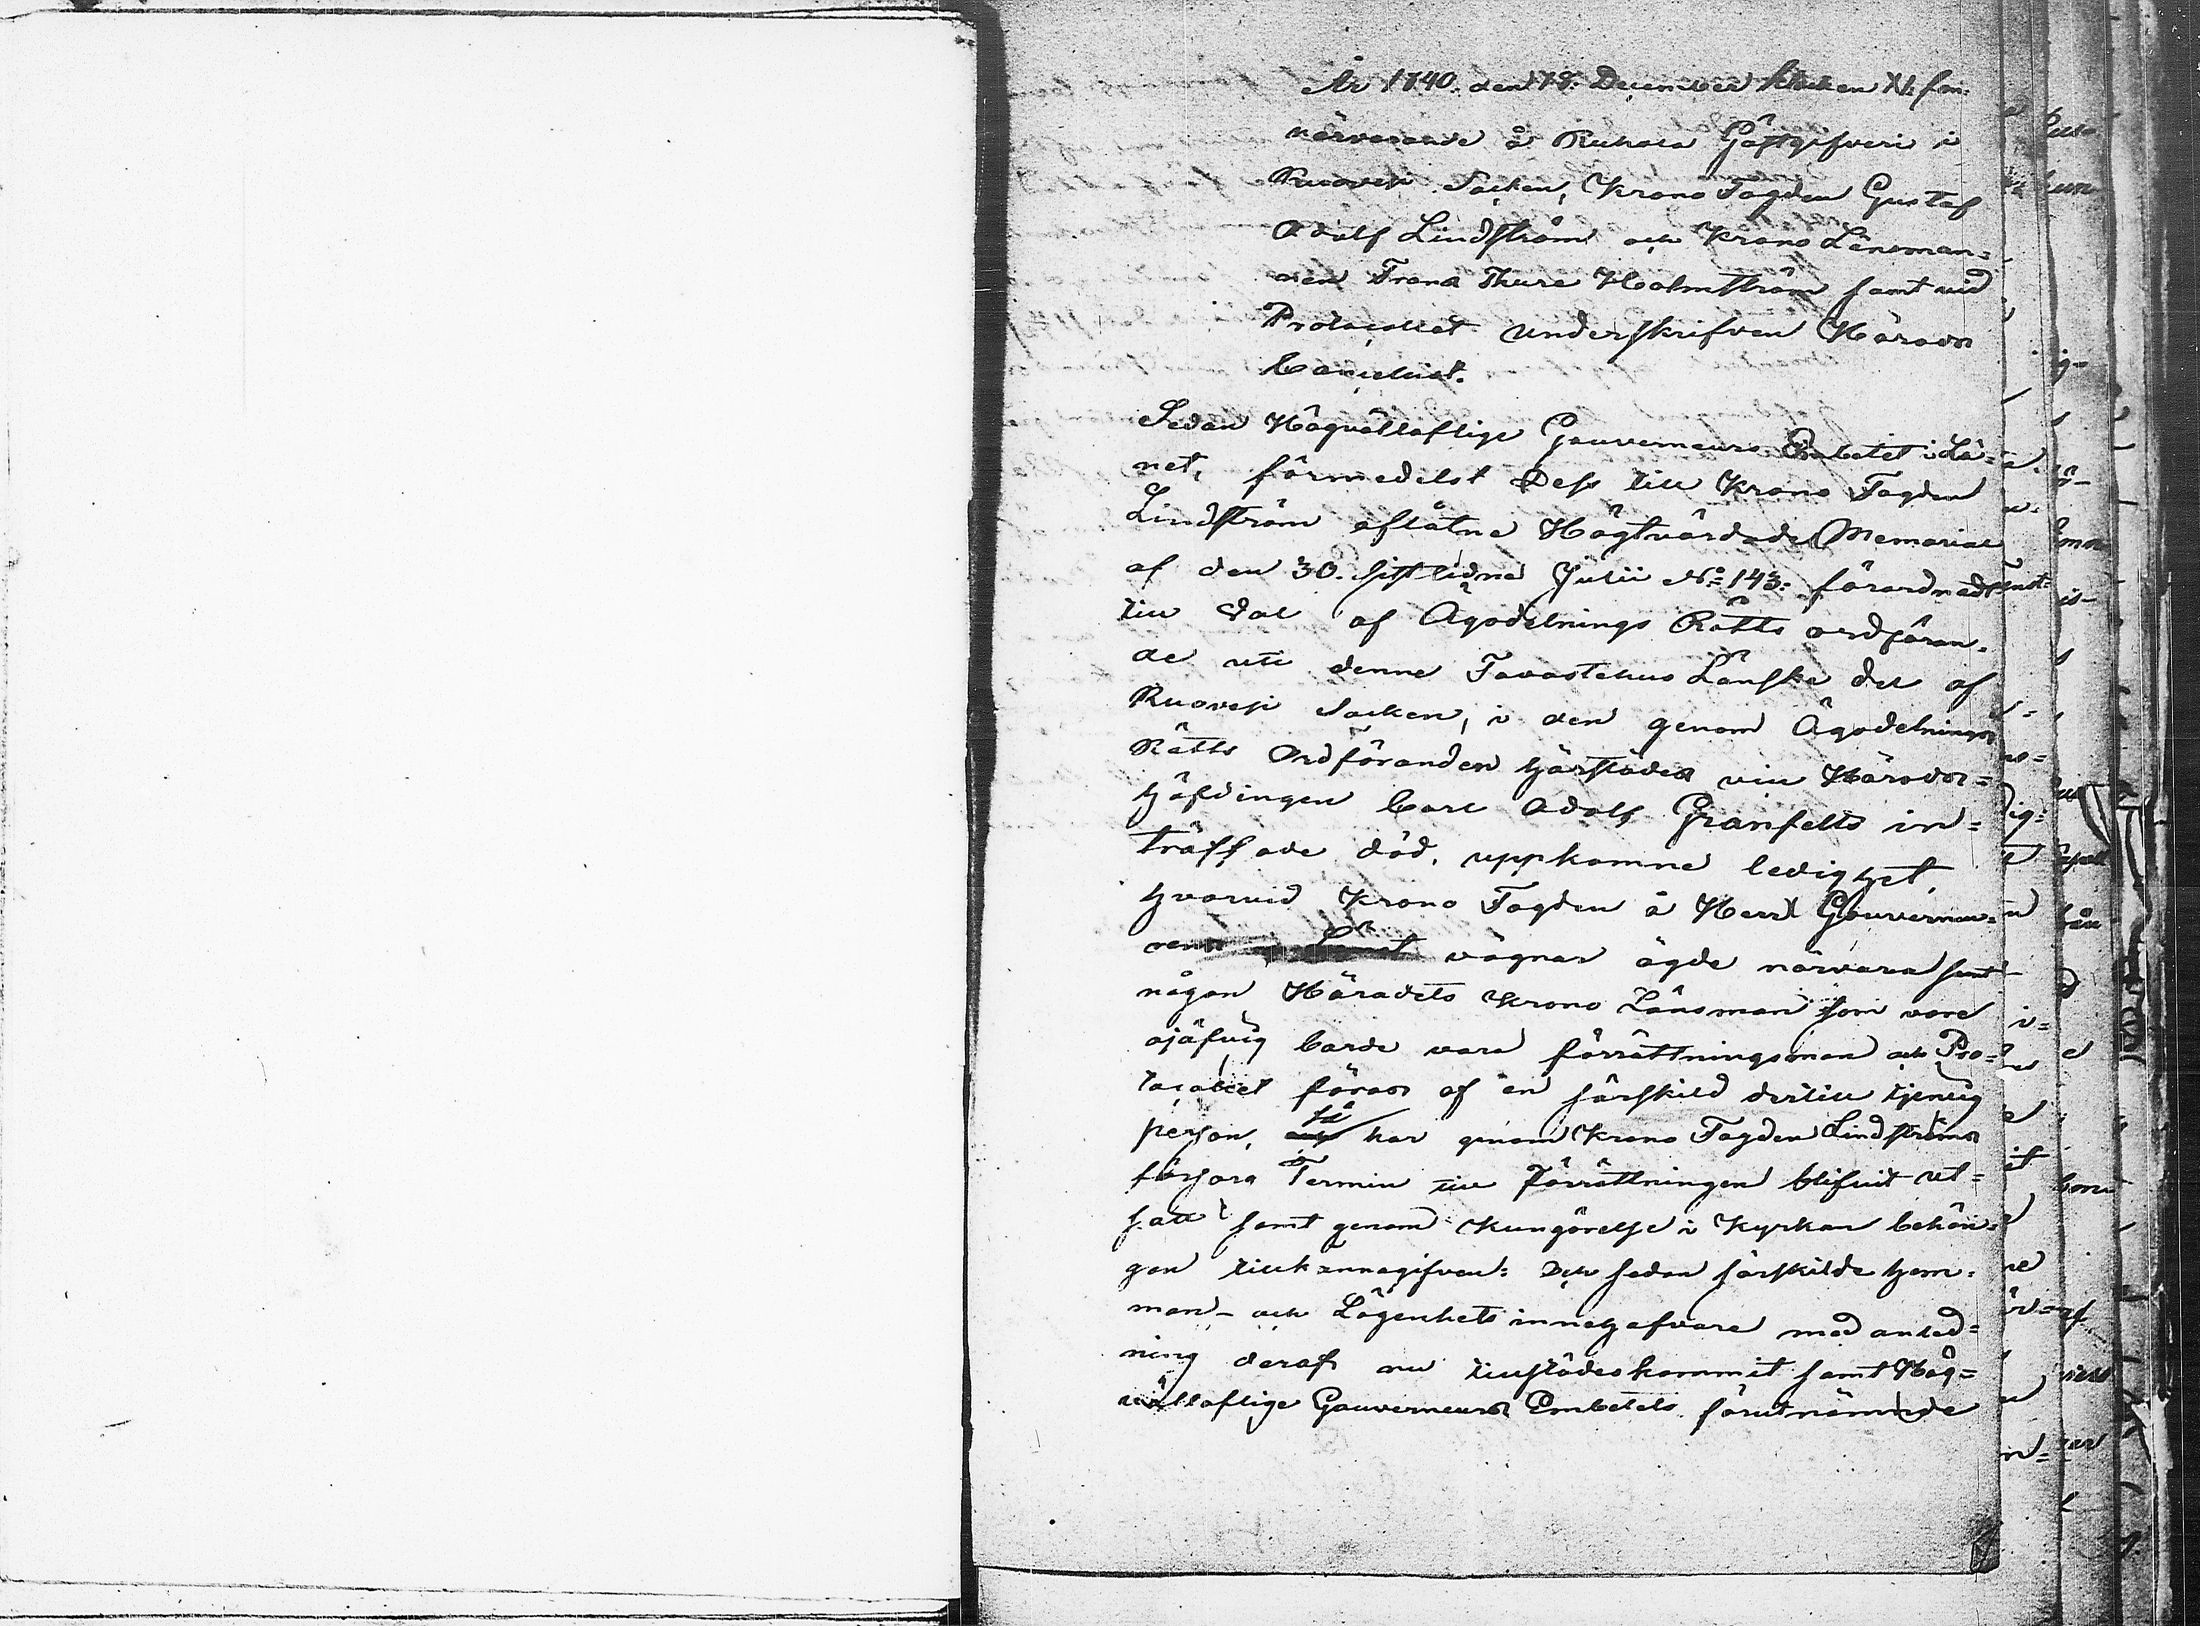 År 1840. den 18. December klockan XI. f.m.
närvarande å Ruhala Gästgifveri i
Ruovesi Socken, Krono Fogden Gustaf
Adolf Lindström och Krono Länsman-
nen Frans Thure Holmström samt vid
Protocollet underskrifven Härads
Cancelist.
Sedan Högvälloflige Gouverneurs Embetet i Lä-
net, förmedelst Dess till Krono Fogden
Lindström aflåtne Högtvördade Memorial
af den 30. sistledne Julii No 143. förordnadt
till Val af Ägodelnings Rätts ordföran-
de uti denne Tavastehus Länske del af
Ruovesi Socken, i den genom Ägodelnings
Rätts Ordföranden härstädes vice Härads-
höfdingen Carl Adolf Granfelts in-
träffade död, uppkomne ledighet,
hvarvid Krono Fogden å Herr Gouverneu-
rens vägnar ägde närvara samt
någon Häradets Krono Länsman som vore
ojäfvig borde vara förrättningsman och Pro-
tocollet föras af en särskild dertill tjenlig
person, så har genom Krono Fogden Lindströms
försorg Termin till Förrättningen blifvit ut-
satt samt genom Kungörelse i Kyrkan behöri-
gen tillkännagifven: Och sedan särskilde hem-
mans- och Lägenhets innehafvare med anled-
ning deraf nu tillstädeskommit samt Hög-
välloflige Gouverneurs Embetets förutnämnde